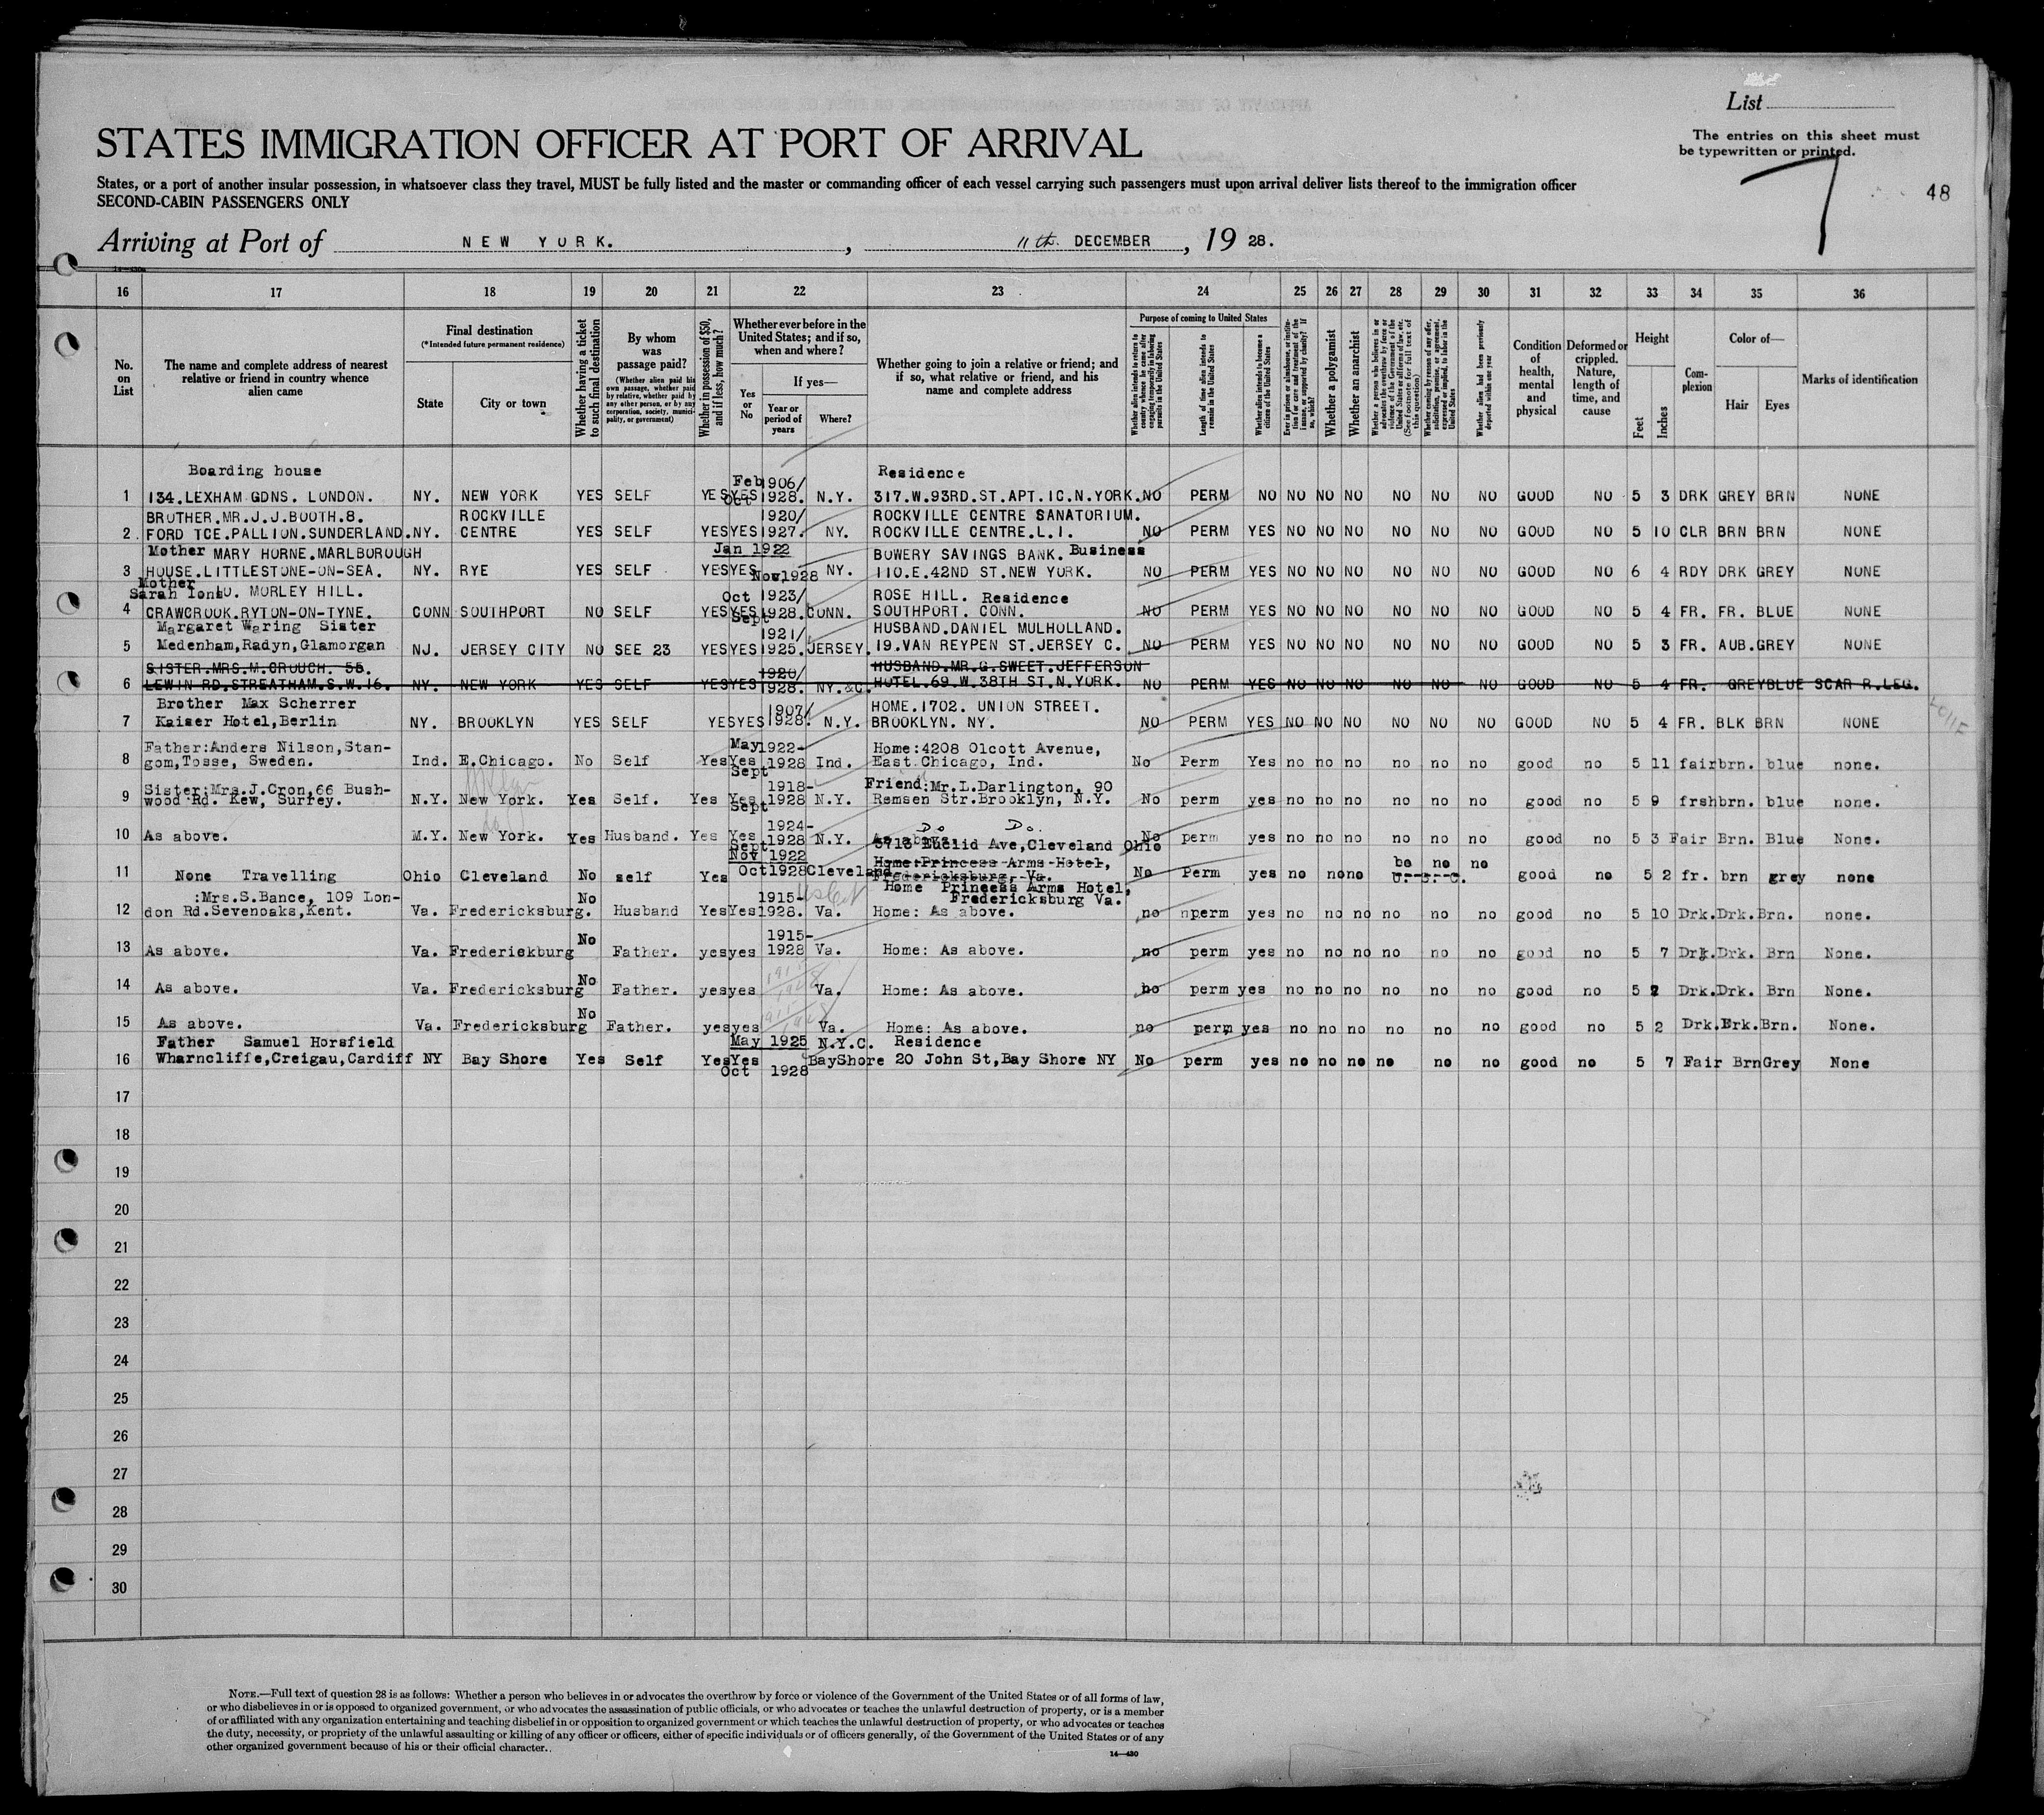 List
The entries on this sheet must
be typewritten or printed.
7
48
STATES IMMIGRATION OFFICER AT PORT OF ARRIVAL
States, or a port of another insular possession, in whatsoever class they travel, MUST be fully listed and the master or commanding officer of each vessel carrying such passengers must upon arrival deliver lists thereof to the immigration officer
SECOND-CABIN PASSENGERS ONLY
Arriving at Port of NEW YORK. , 11th. DECEMBER , 19 28.
16 17 18 19 20 21 22 23 24 25 26 27 28 29 30 31 32 33 34 35 36
No. on List
The name and complete address of nearest relative or friend in country whence alien came
Final destination
(*Intended future permanent residence)
State
City or town
Whether having a ticket to such final destination
By whom was passage paid?
(Whether alien paid his own passage, whether paid by relative, whether paid by any other person, or by any corporation, society, municipality, or government)
Whether in possession of $50, and if less, how much?
Whether ever before in the United States; and if so, when and where?
Yes or No
If yes—
Year or period of years
Where?
Whether going to join a relative or friend; and if so, what relative or friend, and his name and complete address
Purpose of coming to United States
Whether alien intends to return to country whence he came after engaging temporarily in laboring pursuits in the United States
Length of time alien intends to remain in the United States
Whether alien intends to become a citizen of the United States
Ever in prison or almshouse, or institution for care and treatment of the insane, or supported by charity? If so, which?
Whether a polygamist
Whether an anarchist
Whether a person who believes in or advocates the overthrow by force or violence of the Government of the United States or all forms of law, etc. (See footnote for full text of this question)
Whether coming by reason of any offer, solicitation, promise, or agreement, expressed or implied, to labor in the United States
Whether alien had been previously deported within one year
Condition of health, mental and physical
Deformed or crippled. Nature, length of time, and cause
Height
Feet
Inches
Complexion
Color of—
Hair
Eyes
Marks of identification
Boarding house Feb 1906/ Residence
1 134.LEXHAM GDNS. LONDON. NY. NEW YORK YES SELF YES YES Oct 1928. N.Y. 317.W.93RD.ST.APT.1C.N.YORK. NO PERM NO NO NO NO NO NO NO GOOD NO 5 3 DRK GREY BRN NONE
BROTHER.MR.J.J.BOOTH.8. ROCKVILLE 1920/ ROCKVILLE CENTRE SANATORIUM.
2 FORD TCE.PALLION.SUNDERLAND. NY. CENTRE YES SELF YES YES 1927. NY. ROCKVILLE CENTRE.L.I. NO PERM YES NO NO NO NO NO NO GOOD NO 5 10 CLR BRN BRN NONE
Mother MARY HORNE.MARLBOROUGH Jan 1922 BOWERY SAVINGS BANK. Business
3 HOUSE.LITTLESTONE-ON-SEA. NY. RYE YES SELF YES YES Nov 1928 NY. 110.E.42ND ST.NEW YORK. NO PERM YES NO NO NO NO NO NO GOOD NO 6 4 RDY DRK GREY NONE
Mother
Sarah MORLEY HILL. Oct 1923/ ROSE HILL. Residence
4 CRAWCROOK.RYTON-ON-TYNE. CONN SOUTHPORT NO SELF YES YES Sept 1928. CONN. SOUTHPORT. CONN. NO PERM YES NO NO NO NO NO NO GOOD NO 5 4 FR. FR. BLUE NONE
Margaret Waring Sister 1921/ HUSBAND.DANIEL MULHOLLAND.
5 Medenham,Radyn,Glamorgan NJ. JERSEY CITY NO SEE 23 YES YES 1925. JERSEY. 19.VAN REYPEN ST.JERSEY C. NO PERM YES NO NO NO NO NO NO GOOD NO 5 3 FR. AUB. GREY NONE
SISTER.MRS.M.CROUCH. 55. 1920/ HUSBAND.MR.G.SWEET.JEFFERSON
6 LEWIN RD.STREATHAM.S.W.16. NY. NEW YORK YES SELF YES YES 1928. NY.&C. HOTEL.69.W.38TH ST.N.YORK. NO PERM YES NO NO NO NO NO NO GOOD NO 5 4 FR. GREY BLUE SCAR R.LEG.
Brother Max Scherrer 1907/ HOME.1702. UNION STREET.
7 Kaiser Hotel,Berlin NY. BROOKLYN YES SELF YES YES 1928. N.Y. BROOKLYN. NY. NO PERM YES NO NO NO NO NO NO GOOD NO 5 4 FR. BLK BRN NONE
Father:Anders Nilson,Stan- May 1922- Home:4208 Olcott Avenue,
8 gom,Tosse, Sweden. Ind. E.Chicago. No Self Yes Yes Sept 1928 Ind. East Chicago, Ind. No Perm Yes no no no no no no good no 5 11 fair brn. blue none.
Sister:Mrs.J.Cron,66 Bush- 1918- Friend:Mr.L.Darlington, 90
9 wood Rd. Kew, Surrey. N.Y. New York. Yes Self. Yes Yes Sept 1928 N.Y. Remsen Str.Brooklyn, N.Y. No perm yes no no no no no no good no 5 9 frsh brn. blue none.
1924- Do Do.
10 As above. M.Y. New York. Yes Husband. Yes Yes Sept 1928 N.Y. As above. No perm yes no no no no no no good no 5 3 Fair Brn. Blue None.
Nov 1922 3713 Euclid Ave,Cleveland Ohio
Home:Princess Arms Hotel, no no
11 None Travelling Ohio Cleveland No self Yes Oct 1928 Cleveland Fredericksburg, Va. No Perm yes no no no U.S.C. good no 5 2 fr. brn grey none
:Mrs.S.Bance, 109 Lon- No 1915- Home Princess Arms Hotel, Fredericksburg Va.
12 don Rd.Sevenoaks,Kent. Va. Fredericksburg. Husband Yes Yes 1928. Va. Home: As above. no perm yes no no no no no no good no 5 10 Drk. Drk. Brn. none.
No 1915-
13 As above. Va. Frederickburg Father. yes yes 1928 Va. Home: As above. no perm yes no no no no no no good no 5 7 Drk. Drk. Brn None.
No
14 As above. Va. Fredericksburg Father. yes yes Va. Home: As above. no perm yes no no no no no no good no 5 2 Drk. Drk. Brn None.
No
15 As above. Va. Fredericksburg Father. yes yes Va. Home: As above. no perm yes no no no no no no good no 5 2 Drk. Brn. None.
Father Samuel Horsfield May 1925 N.Y.C. Residence
16 Wharncliffe,Creigau,Cardiff NY Bay Shore Yes Self Yes Yes Oct 1928 BayShore 20 John St,Bay Shore NY No perm yes no no no no no no good no 5 7 Fair Brn Grey None
17
18
19
20
21
22
23
24
25
26
27
28
29
30
NOTE.—Full text of question 28 is as follows: Whether a person who believes in or advocates the overthrow by force or violence of the Government of the United States or of all forms of law,
or who disbelieves in or is opposed to organized government, or who advocates the assassination of public officials, or who advocates or teaches the unlawful destruction of property, or is a member
of or affiliated with any organization entertaining and teaching disbelief in or opposition to organized government or which teaches the unlawful destruction of property, or who advocates or teaches
the duty, necessity, or propriety of the unlawful assaulting or killing of any officer or officers, either of specific individuals or of officers generally, of the Government of the United States or of any
other organized government because of his or their official character.
14—430